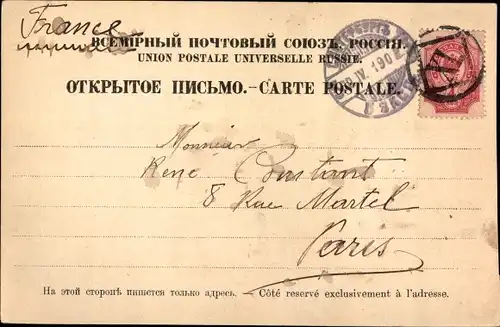 France
ВСЕМІРНЫЙ ПОЧТОВЫЙ СОЮЗЪ. РОССІЯ.
UNION POSTALE UNIVERSELLE RUSSIE.
ОТКРЫТОЕ ПИСЬМО.-CARTE POSTALE.
Monsieur
René Constant
8 Rue Martel
Paris
На этой сторонѣ пишется только адресъ. - Côté reservé exclusivement à l'adresse.